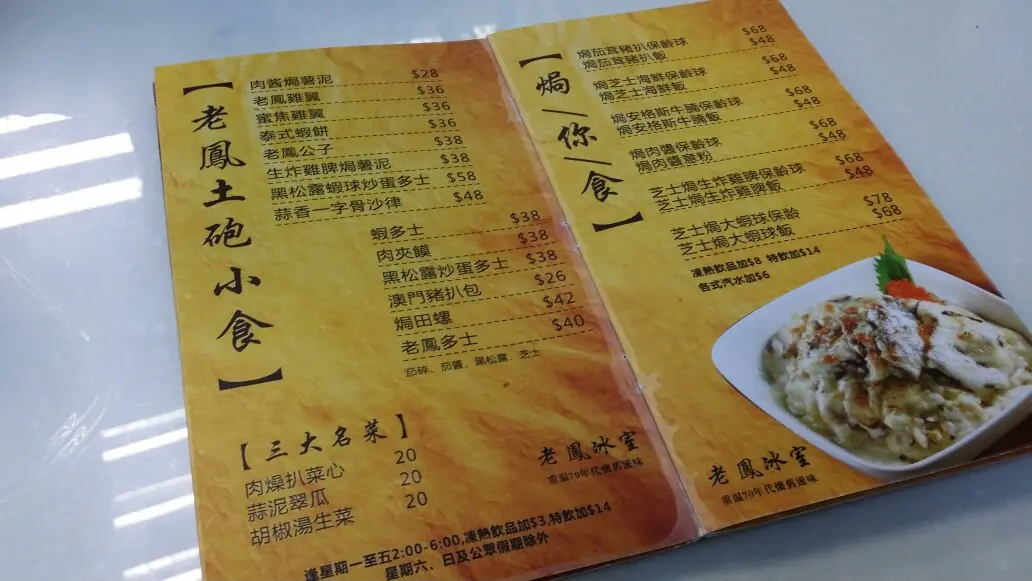 【老鳳土砲小食】
肉酱焗薯泥 $28
老鳳雞翼 $36
蜜焦雞翼 $36
泰式蝦餅 $36
老鳳公子 $38
生炸雞脾焗薯泥 $38
黑松露蝦球炒蛋多士 $58
蒜香一字骨沙律 $48
蝦多士 $38
肉夾饃 $38
黑松露炒蛋多士 $38
澳門豬扒包 $26
焗田螺 $42
老鳳多士 $40
茄碎、茄醬、黑松露、芝士
【三大名菜】
肉燥扒菜心 20
蒜泥翠瓜 20
胡椒湯生菜 20
老鳳冰室
重溫70年代懷舊滋味
逢星期一至五2:00-6:00,凍熱飲品加$3,特飲加$14
星期六、日及公眾假期除外
【焗/你/食】
焗茄茸豬扒保齡球 $68
焗茄茸豬扒飯 $48
焗芝士海鮮保齡球 $68
焗芝士海鮮飯 $48
焗安格斯牛脷保齡球 $68
焗安格斯牛脷飯 $48
焗肉醬保齡球 $68
焗肉醬意粉 $48
芝士焗生炸雞脾保齡球 $68
芝士焗生炸雞脾飯 $48
芝士焗大蝦球保齡 $78
芝士焗大蝦球飯 $68
凍熱飲品加$8 特飲加$14
各式汽水加$6
老鳳冰室
重溫70年代懷舊滋味